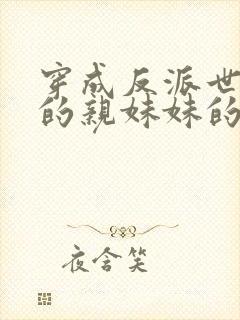 穿成反派世
的亲妹妹的
夜含笑